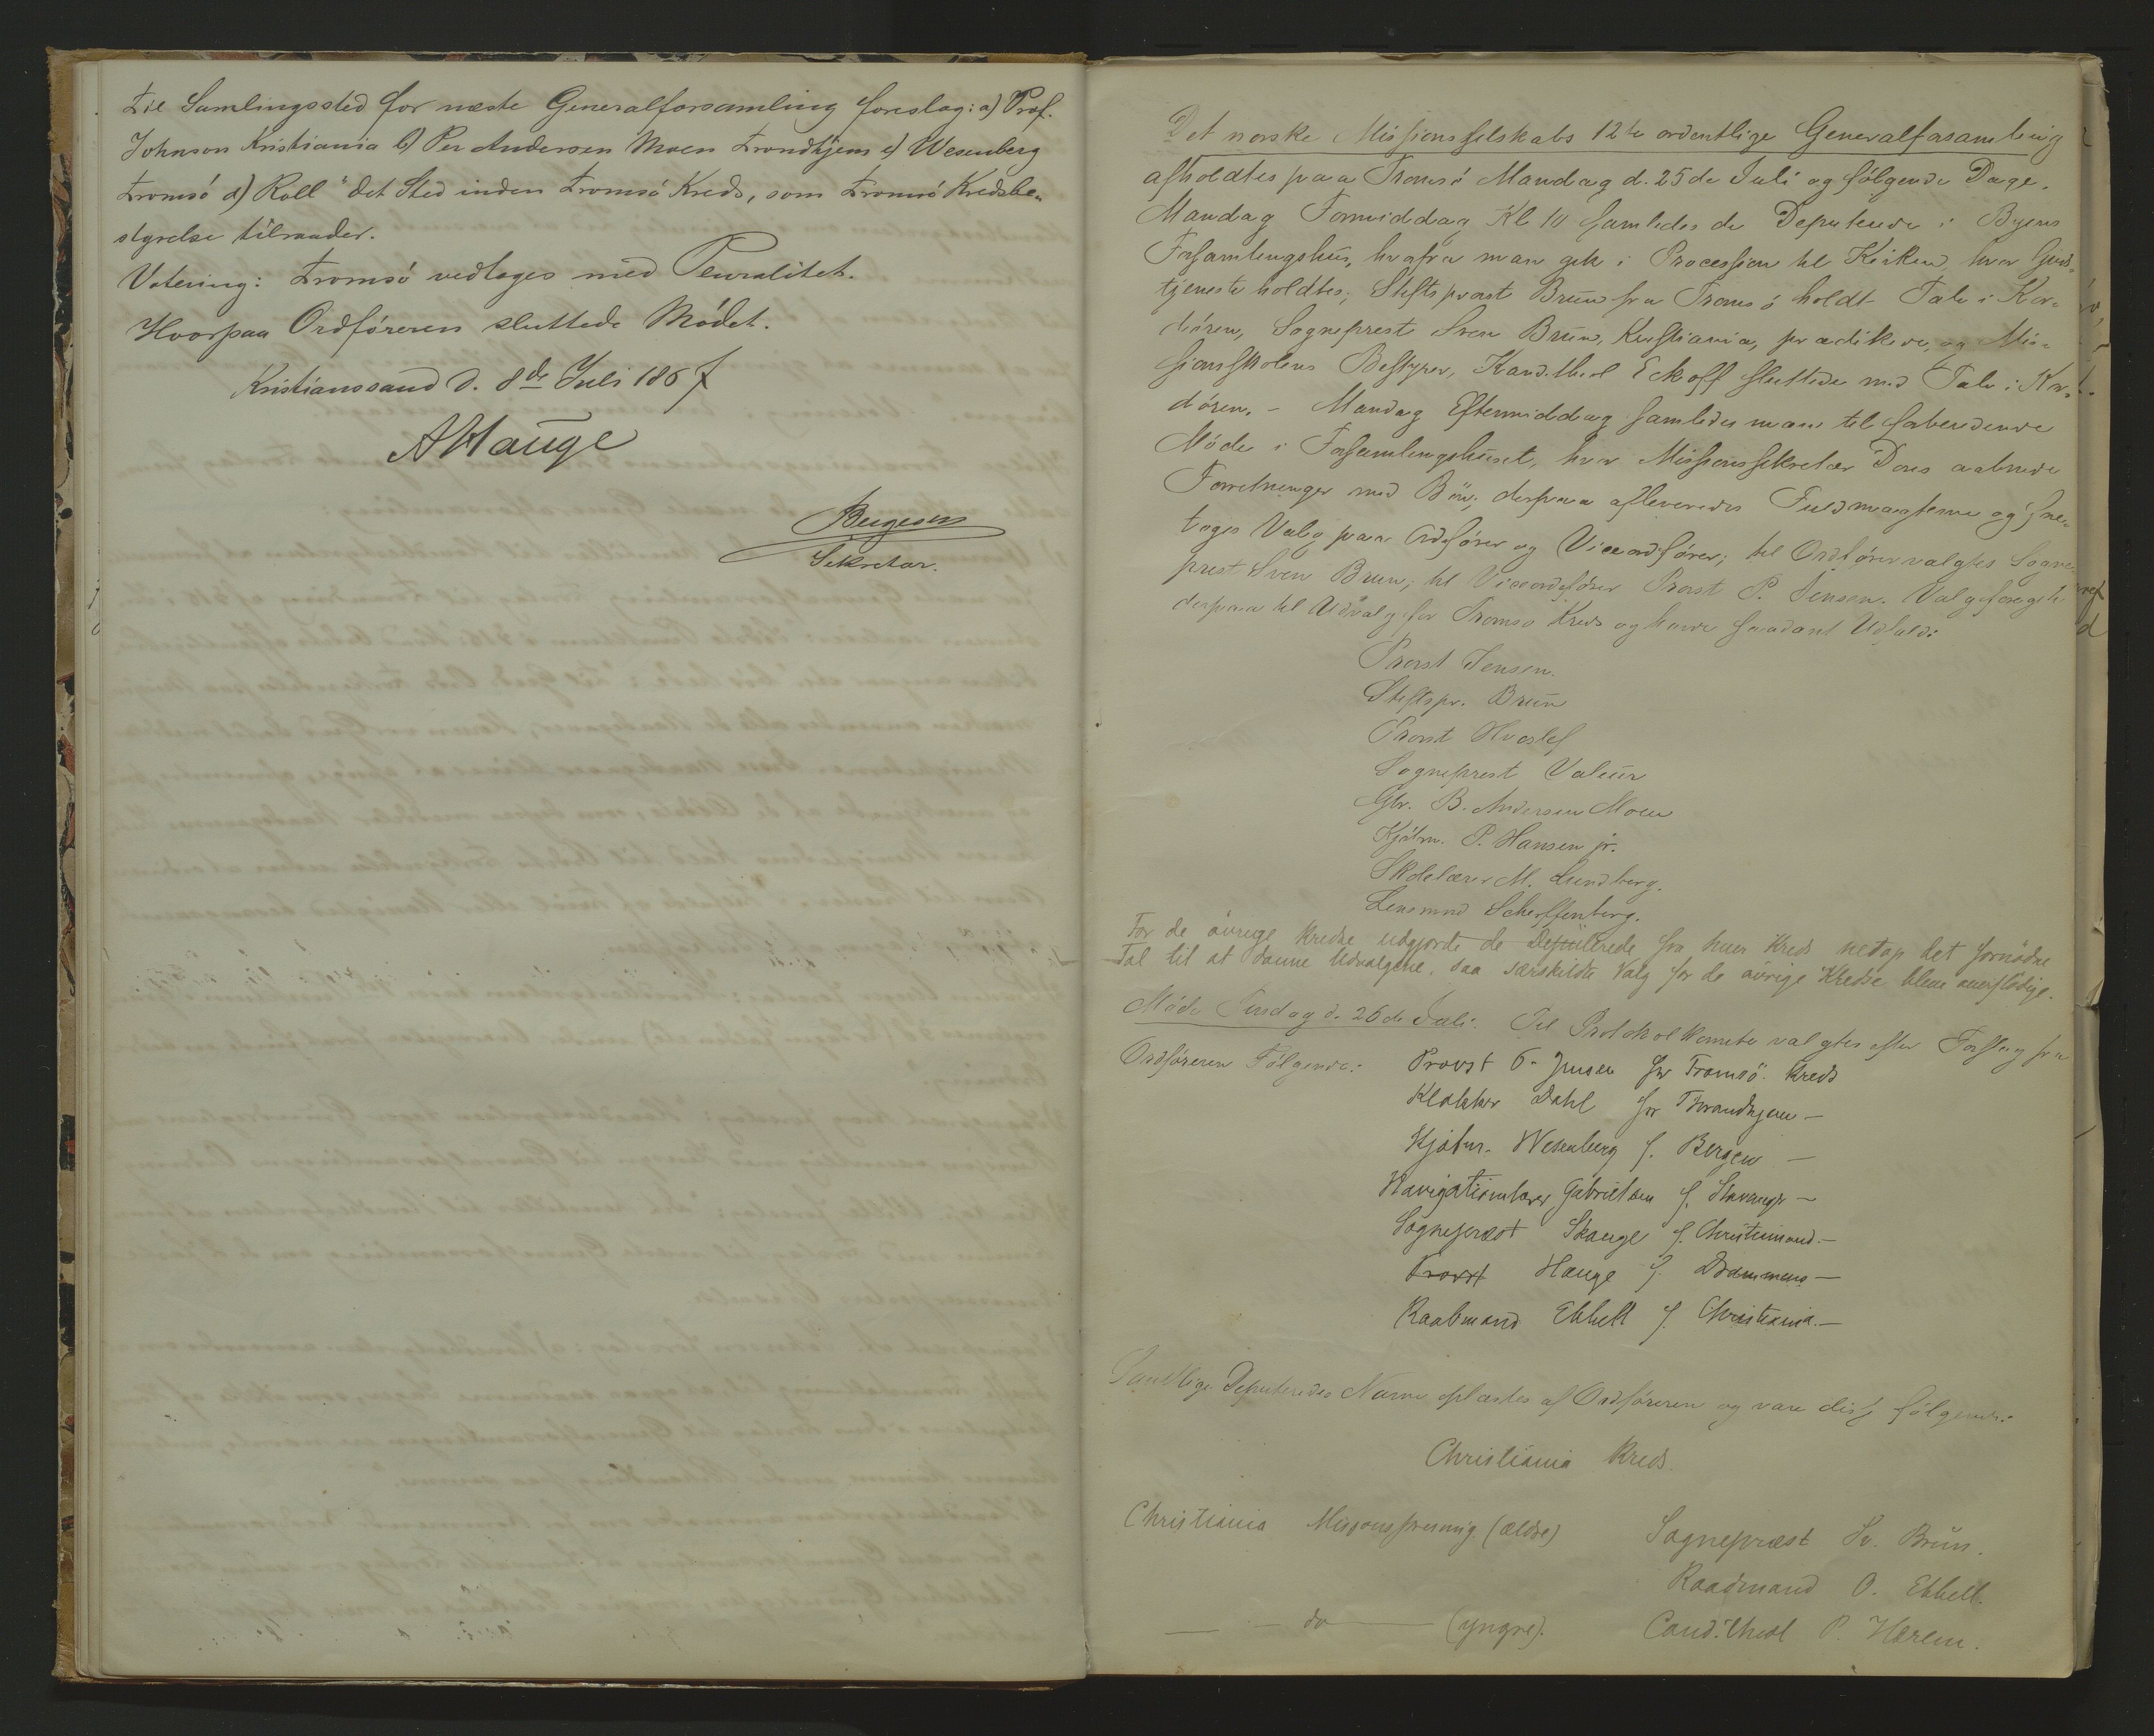 Til Samlingssted for næste Generalforsamling foreslog: a) Prof.
Johnson Kristiania b) Per Andersen Moen Trondhjem c) Wesenberg
Tromsö d) Roll "det Sted inden Tromsö Kreds, som Tromsö Kredsbe-
styrelse tilraader.
Votering: Tromsö vedtoges med Pluralitet.
Hvorpaa Ordföreren sluttede Mödet.
Kristianssand d. 8de Juli 1867
AHauge
Sekretær.
Det norske Missionsselskabs 12te ordentlige Generalforsamling
afholdtes paa Tromsö Mandag d. 25de Juli og fölgende Dage.
Mandag Formiddag Kl 10 samledes de Deputerede i Byens
Forsamlingshus, hvorfra man gik i Procession til Kirken, hvor Guds-
tjeneste holdtes; Stiftsprovst Brun fra Tromsö holdt Tale i Kor-
dören, Sogneprest Sven Brun, Kristiania, prædikede, og Mis-
sionsskolens Bestyrer, Kand. theol Eckoff sluttede med Tale i Kor-
dören. - Mandag Eftermiddag samledes man til forberedende
Möde i Forsamlingshuset, hvor Missionssekretær Dons aabnede
Forretninger med Bön; derpaa afleveredes Fuldmagterne og fore-
toges Valg paa Ordförer og Viceordförer; til Ordförer valgtes Sogne-
prest Sven Brun, til Viceordförer Provst P. Jensen. Valg foregik
derpaa til Udvalg for Tromsö Kreds og havde saadant Udfald:
Provst Jensen.
Stiftspr. Brun
Provst Hvoslef
Sogneprest Valeur
Gbr. B. Andersen Moen
Kjöbm. P. Hansen jr.
Skolelærer M. Lundberg.
Lensmand Scheffenberg.
For de övrige Kredse udgjorde de Deputerede fra hver Kreds netop det fornödne
Tal til at danne Udvalgene, saa særskildte Valg for de övrige Kredse bleve overflödige.
Möde Tirsdag d. 26de Juli. Til Protokolkomite valgtes efter Forslag fra
Ordföreren Fölgende: Provst P. Jensen for Tromsö Kreds
Klokker Dahl for Throndhjem —
Kjöbm. Wesenberg f. Bergen —
Navigationslærer Gabrielsen f. Stavanger —
Sogneprest Skauge f. Christiansand. —
Provst Hauge f. Drammens —
Raadmand Ebbell f. Christiania. —
Samtlige Deputeredes Navne oplæstes af Ordföreren og vare disse fölgende:
Christiania Kreds.
Christiania Missionsforening (ældre) Sogneprest Sv. Brun.
Raadmand O. Ebbell.
— — do — (yngre). Cand. theol P. Hærem.